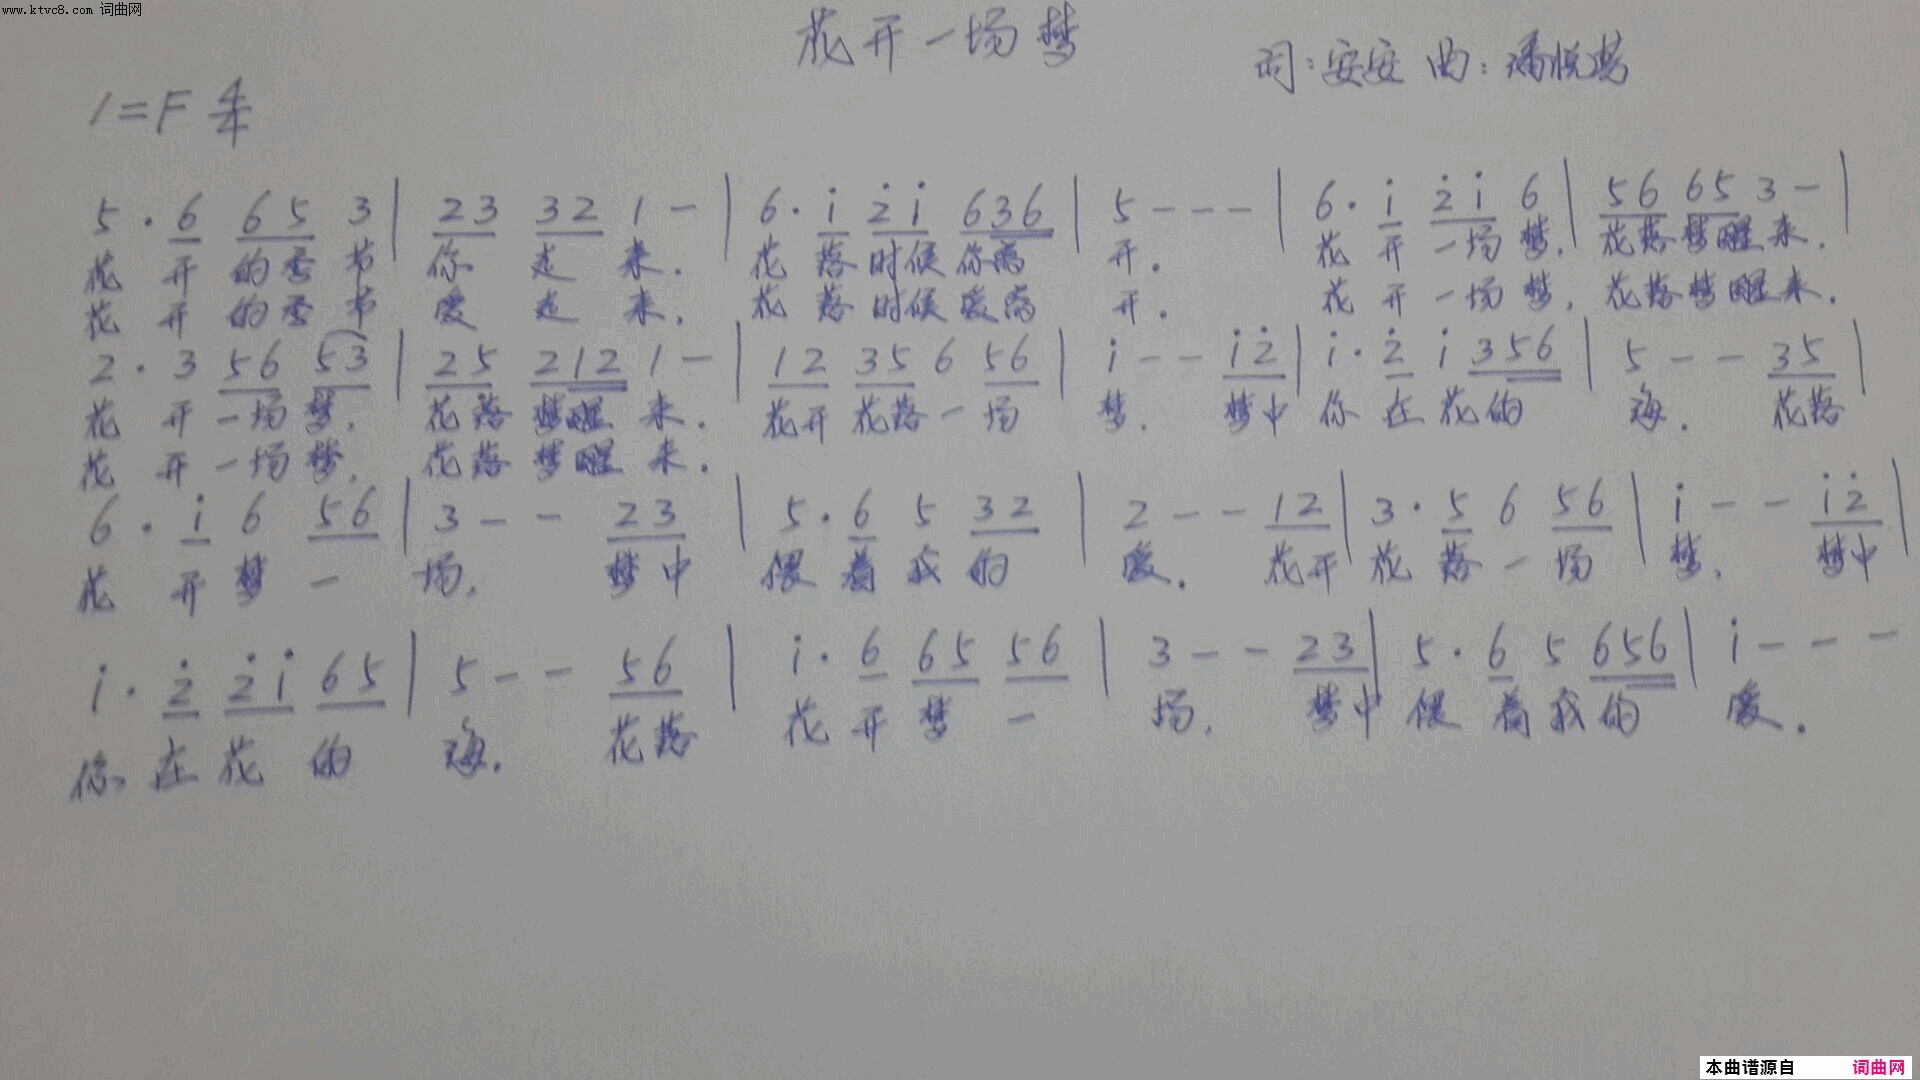 www.ktvc8.com 词曲网
花开一场梦
词:安安 曲:潘悦
1=F 4/4
5·6 65 3 | 23 32 1 - | 6·i̇ 2̇i̇ 636 | 5 - - - | 6·i̇ 2̇i̇ 6 | 56 65 3 - |
花开的季节 你走来. 花落时候你离开. 花开一场梦, 花落梦醒来.
花开的季节 爱走来, 花落时候爱离开. 花开一场梦, 花落梦醒来.
2·3 56 53 | 25 212 1 - | 12 35 6 56 | i̇ - - i̇2̇ | i̇·2̇ i̇ 356 | 5 - - 35 |
花开一场梦, 花落梦醒来. 花开花落一场梦. 梦中你在花的海. 花落
花开一场梦, 花落梦醒来.
6·i̇ 6 56 | 3 - - 23 | 5·6 5 32 | 2 - - 12 | 3·5 6 56 | i̇ - - i̇2̇ |
花开梦一场, 梦中偎着我的爱. 花开花落一场梦, 梦中
i̇·2̇ 2̇i̇ 65 | 5 - - 56 | i̇·6 65 56 | 3 - - 23 | 5·6 5 656 | i̇ - - -
你在花的海. 花落花开梦一场, 梦中偎着我的爱.
本曲谱源自 词曲网